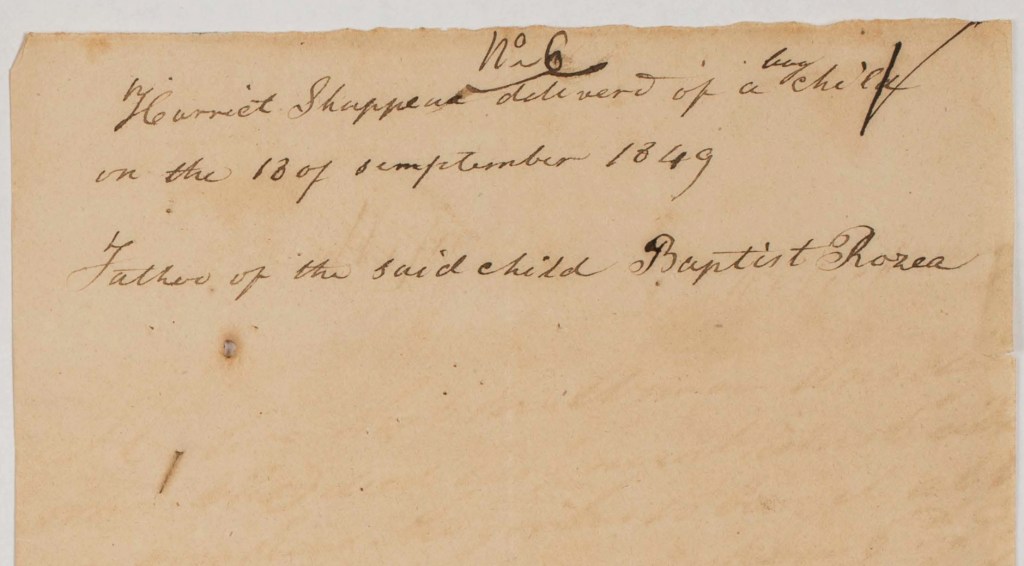 No 6
Harriet Shappeau deliverd of a boy child
on the 18 of semptember 1849
Father of the said child Baptist Rozea